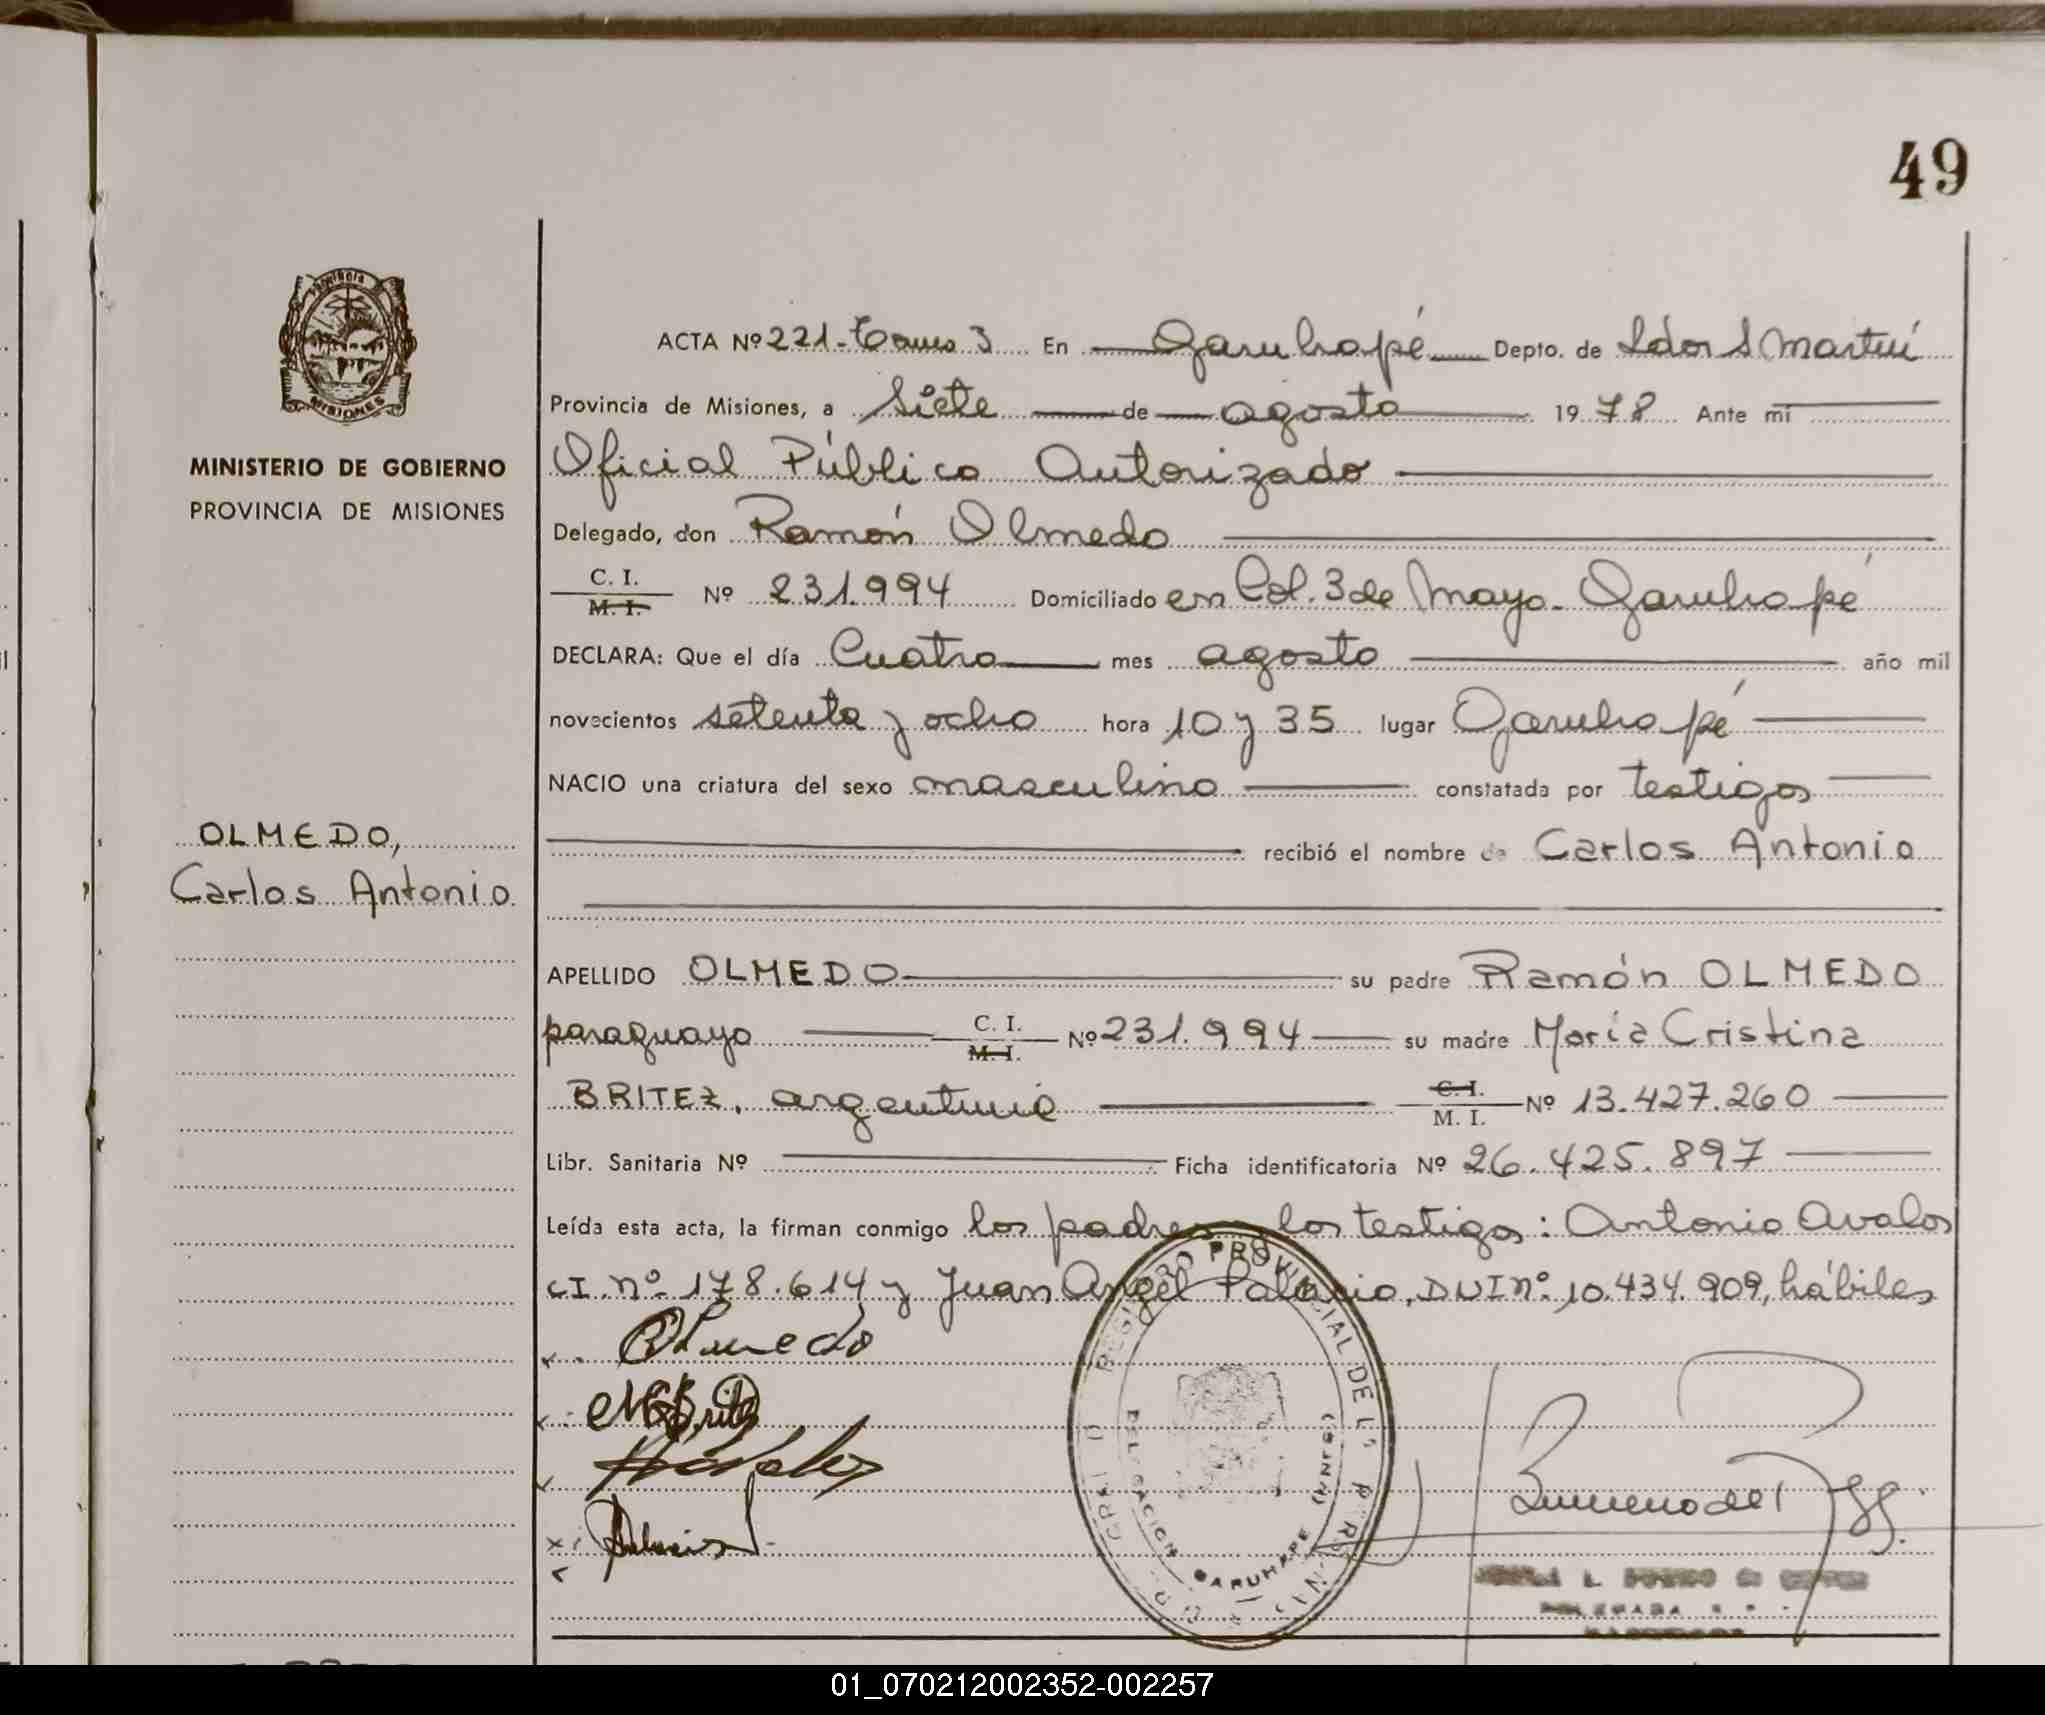 49
PROVINCIA
MISIONES
MINISTERIO DE GOBIERNO
PROVINCIA DE MISIONES
OLMEDO,
Carlos Antonio
ACTA Nº 221-Tomo 3 En Garuhapé Depto. de Ldor S Martín
Provincia de Misiones, a Siete de agosto 1978 Ante mi
Oficial Público Autorizado
Delegado, don Ramón Olmedo
C. I.
M. I.
Nº 231.994 Domiciliado en Col. 3 de Mayo - Garuhapé
DECLARA: Que el día Cuatro mes agosto año mil
novecientos setenta y ocho hora 10 y 35 lugar Garuhapé
NACIO una criatura del sexo masculino constatada por testigos
recibió el nombre de Carlos Antonio
APELLIDO OLMEDO su padre Ramón OLMEDO
paraguayo C. I. M. I. Nº 231.994 su madre María Cristina
BRITEZ, argentina C. I. M. I. Nº 13.427.260
Libr. Sanitaria Nº Ficha identificatoria Nº 26.425.897
Leída esta acta, la firman conmigo los padres y los testigos: Antonio Avalos
CI. nº 178.614 y Juan Angel Palacio, DUI nº 10.434.909, hábiles
Olmedo
REGISTRO PROVINCIAL DE LAS PERSONAS
DELEGACION GARUHAPE (MNES)
DELEGADA
01_070212002352-002257